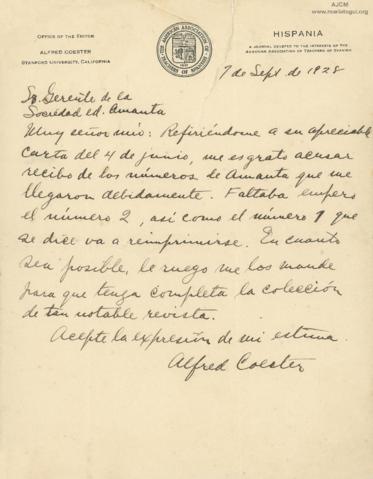 AJCM
www.mariategui.org
OFFICE OF THE EDITOR
ALFRED COESTER
STANFORD UNIVERSITY, CALIFORNIA
AMERICAN ASSOCIATION OF TEACHERS OF SPANISH
HISPANIA
A JOURNAL DEVOTED TO THE INTERESTS OF THE
AMERICAN ASSOCIATION OF TEACHERS OF SPANISH
7 de Sept. de 1928
Sr. Gerente de la
Sociedad ed. Amauta
Muy señor mio: Refiriéndome a su apreciable
carta del 4 de junio, me es grato acusar
recibo de los números de Amauta que me
llegaron debidamente. Faltaba empero
el número 2, así como el número 1 que
se dice va a reimprimirse. En cuanto
sea posible, le ruego me los mande
para que tenga completa la colección
de tan notable revista.
Acepte la expresión de mi estima.
Alfred Coester